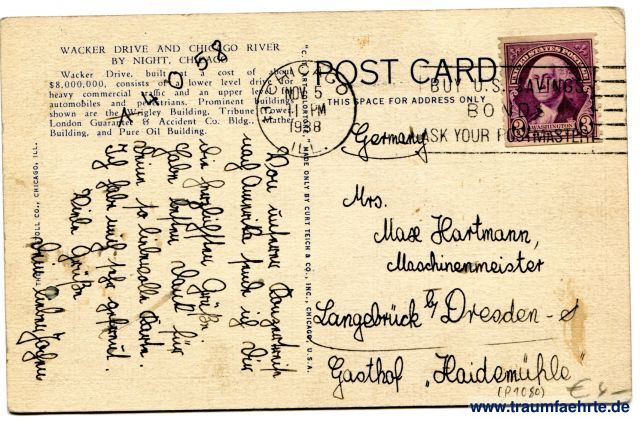 WACKER DRIVE AND CHICAGO RIVER
BY NIGHT, CHICAGO
Wacker Drive, built at a cost of about
$8,000,000, consists of a lower level drive for
heavy commercial traffic and an upper level for
automobiles and pedestrians. Prominent buildings
shown are the Wrigley Building, Tribune Tower,
London Guarantee & Accident Co. Bldg., Mather
Building, and Pure Oil Building.
A4058
CO., CHICAGO, ILL.
Von unserer Konzertreise
nach Amerika sende ich Dir
die herzlichsten Grüße
Habe besten Dank für
Deine so liebevolle Karte.
Ich habe mich sehr gefreut.
Viele Grüße
Dein
MADE ONLY BY CURT TEICH & CO., INC., CHICAGO, U.S.A.
POST CARD
THIS SPACE FOR ADDRESS ONLY
CHICAGO
NOV 5
PM
1938
ILL.
BUY U.S. SAVINGS
BONDS
ASK YOUR POSTMASTER
UNITED STATES POSTAGE
WASHINGTON
3 3
Germany
Mrs.
Max Hartmann,
Maschinenmeister
Langebrück b/ Dresden
Gasthof „Haidemühle"
(P1080)
€ 4-
www.traumfaehrte.de